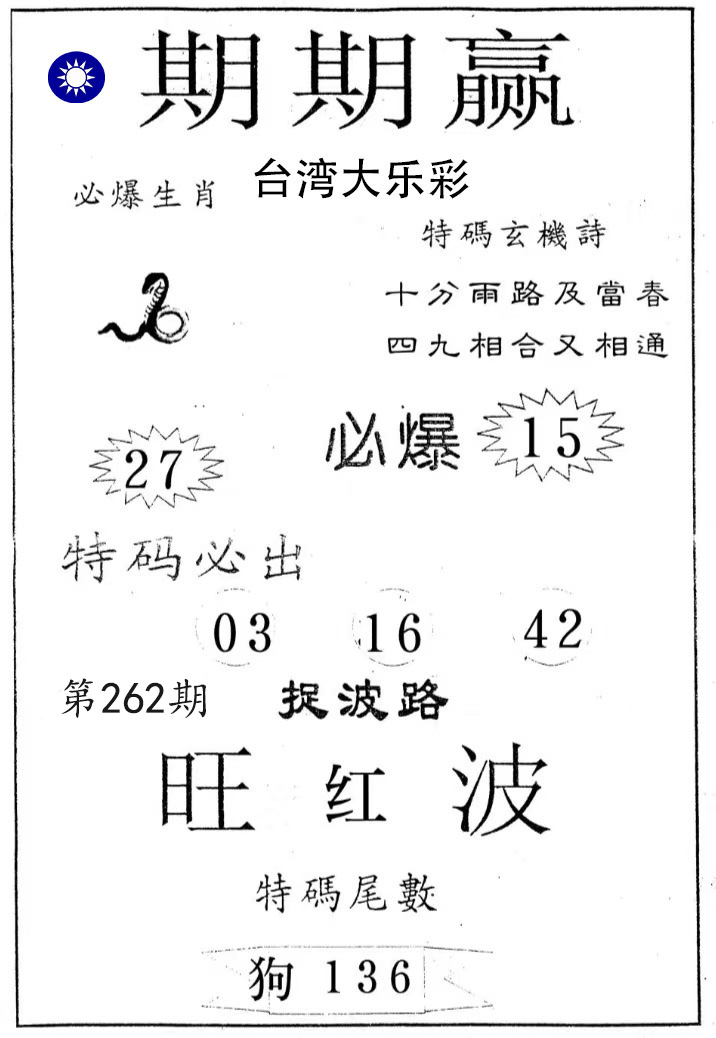 期期赢
台湾大乐彩
必爆生肖
特碼玄機詩
十分雨路及當春
四九相合又相通
27
必爆
15
特码必出
03 16 42
第262期
捉波路
旺红波
特碼尾數
狗 136